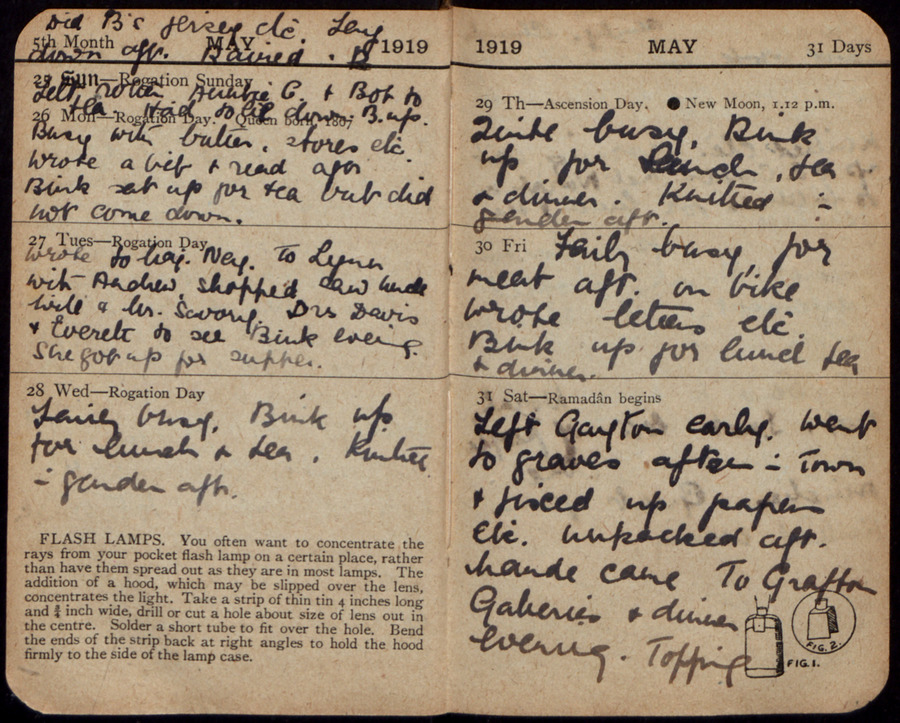 Did B's jersey etc. Lay
5th Month MAY 1919
down aft. Rained. B
25 Sun—Rogation Sunday
left Auntie G. & Bob to
tea. Had to lie down. B. up.
26 Mon—Rogation Day. Queen born, 1867
Busy with butter, stores etc.
wrote a bit & read aftn
Bink sat up for tea but did
not come down.
27 Tues—Rogation Day
wrote to Ney. To Lynn
with Andrew, shopped saw Uncle
Will & Mr. Savory. Drs Davis
& Everett to see Bink evening.
She got up for supper.
28 Wed—Rogation Day
Fairly busy. Bink up
for lunch & tea. Knitted
in garden aft.
FLASH LAMPS. You often want to concentrate the
rays from your pocket flash lamp on a certain place, rather
than have them spread out as they are in most lamps. The
addition of a hood, which may be slipped over the lens,
concentrates the light. Take a strip of thin tin 4 inches long
and ¾ inch wide, drill or cut a hole about size of lens out in
the centre. Solder a short tube to fit over the hole. Bend
the ends of the strip back at right angles to hold the hood
firmly to the side of the lamp case.
1919 MAY 31 Days
29 Th—Ascension Day. ● New Moon, 1.12 p.m.
Quite busy, Bink
up for lunch, tea
& dinner. Knitted in
garden aft.
30 Fri Fairly busy, for
meat aft. on bike
wrote letters etc.
Bink up for lunch tea
& dinner.
31 Sat—Ramadân begins
Left Gayton early. Went
to graves after in Town
& fixed up papers
etc. unpacked aft.
Maude came To Grafton
Galleries & dinner
evening. Topping
FIG. 1.
FIG. 2.